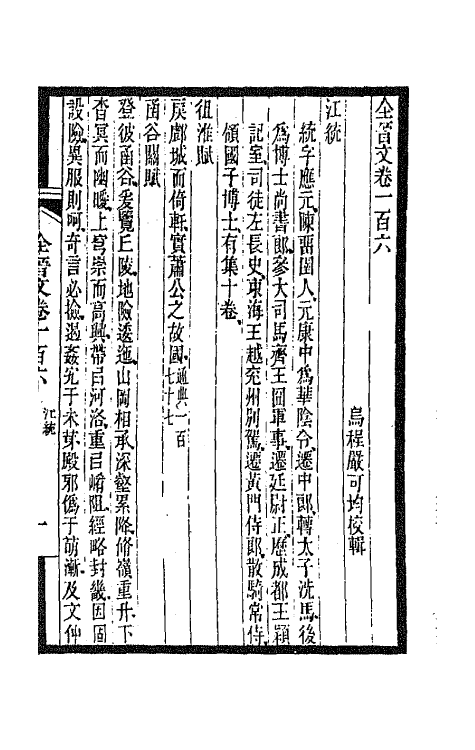 全晉文卷一百六
烏程嚴可均校輯
江統
統字應元陳畱圉人元康中爲華陰令遷中郎轉太子洗馬後
爲博士尚書郎參大司馬齊王冏軍事遷廷尉正歷成都王穎
記室司徒左長史東海王越兗州別駕遷黃門侍郎散騎常侍
領國子博士有集十卷
徂淮賦
戾酇城而倚軒實蕭公之故國通典一百七十七
函谷關賦
登彼函谷爰覽丘陵地險逶迤山岡相承深壑累降脩嶺重升下
杳冥而幽曖上穹崇而高興帶㠯河洛重㠯崤阻經略封畿因固
設險異服則呵奇言必撿遏姦宄于未芽殿邪僞于萌漸及文仲
全晉文卷一百六
江統
一